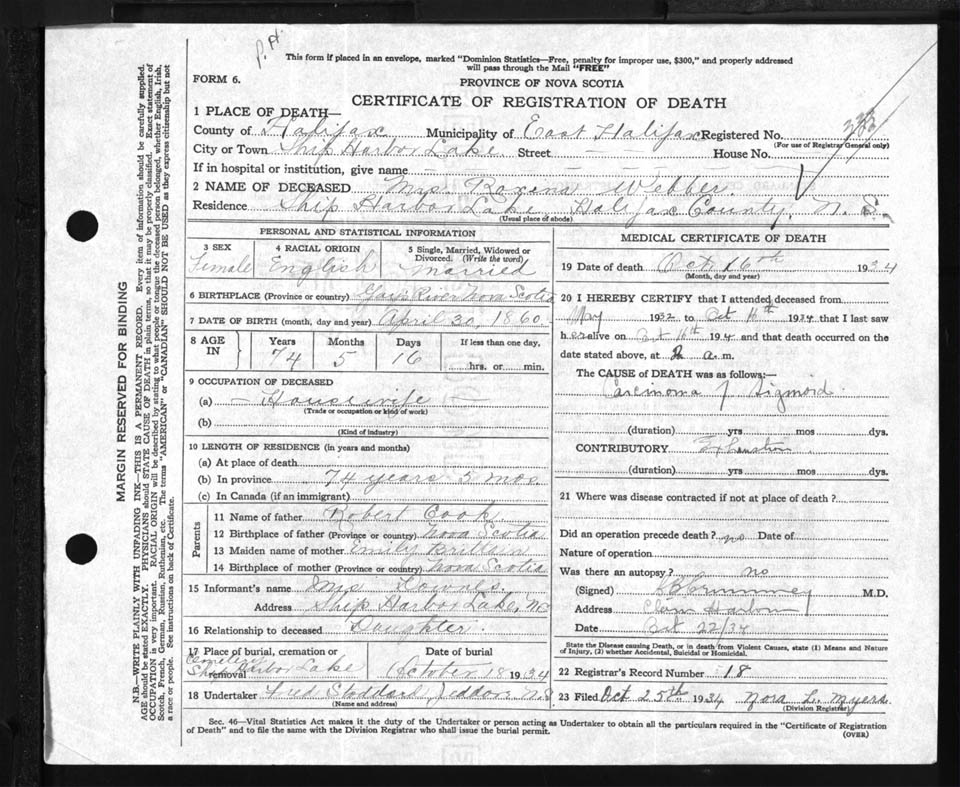 P.H.
This form if placed in an envelope, marked "Dominion Statistics—Free, penalty for improper use, $300," and properly addressed
will pass through the Mail "FREE"
FORM 6.
PROVINCE OF NOVA SCOTIA
CERTIFICATE OF REGISTRATION OF DEATH
1 PLACE OF DEATH—
County of Halifax Municipality of East Halifax Registered No.
(For use of Registrar General only)
City or Town Ship Harbor Lake Street House No.
If in hospital or institution, give name
2 NAME OF DECEASED Mrs Roxena Webber
Residence Ship Harbor Lake, Halifax County, N. S.
(Usual place of abode)
PERSONAL AND STATISTICAL INFORMATION
3 SEX 4 RACIAL ORIGIN 5 Single, Married, Widowed or
Divorced. (Write the word)
Female English Married
6 BIRTHPLACE (Province or country) Gays River Nova Scotia
7 DATE OF BIRTH (month, day and year) April 30, 1860
8 AGE IN Years Months Days If less than one day,
74 5 16 hrs. or min.
9 OCCUPATION OF DECEASED
(a) — Housewife —
(Trade or occupation or kind of work)
(b)
(Kind of industry)
10 LENGTH OF RESIDENCE (in years and months)
(a) At place of death
(b) In province 74 years 5 mos.
(c) In Canada (if an immigrant)
Parents
11 Name of father Robert Cook
12 Birthplace of father (Province or country) Nova Scotia
13 Maiden name of mother Emily Brittain
14 Birthplace of mother (Province or country) Nova Scotia
15 Informant's name Mrs Downes
Address Ship Harbor Lake, NS
16 Relationship to deceased Daughter
17 Place of burial, cremation or removal Date of burial
Cemetery
Ship Harbor Lake October 18 1934
18 Undertaker Fred Stoddard Jeddore N.S
(Name and address)
MEDICAL CERTIFICATE OF DEATH
19 Date of death Oct 16th 1934
(Month, day and year)
20 I HEREBY CERTIFY that I attended deceased from
May 1932 to Oct 1934 that I last saw
her alive on Oct 194 and that death occurred on the
date stated above, at a. m.
The CAUSE of DEATH was as follows:—
Carcinoma of Sigmoid
(duration) yrs mos dys.
CONTRIBUTORY Exhaustion
(duration) yrs mos dys.
21 Where was disease contracted if not at place of death?
Did an operation precede death? no Date of
Nature of operation
Was there an autopsy? no
(Signed) M.D.
Address Clam Harbour
Date Oct 22/34
State the Disease causing Death, or in death from Violent Causes, state (1) Means and Nature
of Injury, (2) whether Accidental, Suicidal or Homicidal.
22 Registrar's Record Number 18
23 Filed Oct 25th 1934 Nora L. Myers
(Division Registrar)
Sec. 46—Vital Statistics Act makes it the duty of the Undertaker or person acting as Undertaker to obtain all the particulars required in the "Certificate of Registration
of Death" and to file the same with the Division Registrar who shall issue the burial permit.
(OVER)
MARGIN RESERVED FOR BINDING
N.B.—WRITE PLAINLY WITH UNFADING INK—THIS IS A PERMANENT RECORD. Every item of information should be carefully supplied.
AGE should be stated EXACTLY. PHYSICIANS should STATE CAUSE OF DEATH in plain terms, so that it may be properly classified. Exact statement of
OCCUPATION is very important. RACIAL ORIGIN will be described by stating to what people or tongue the deceased person belonged, whether English, Irish,
Scotch, French, German, Russian, Ruthenian, etc. The terms "AMERICAN" or "CANADIAN" SHOULD NOT BE USED as they express citizenship but not
a race or people. See instructions on back of Certificate.